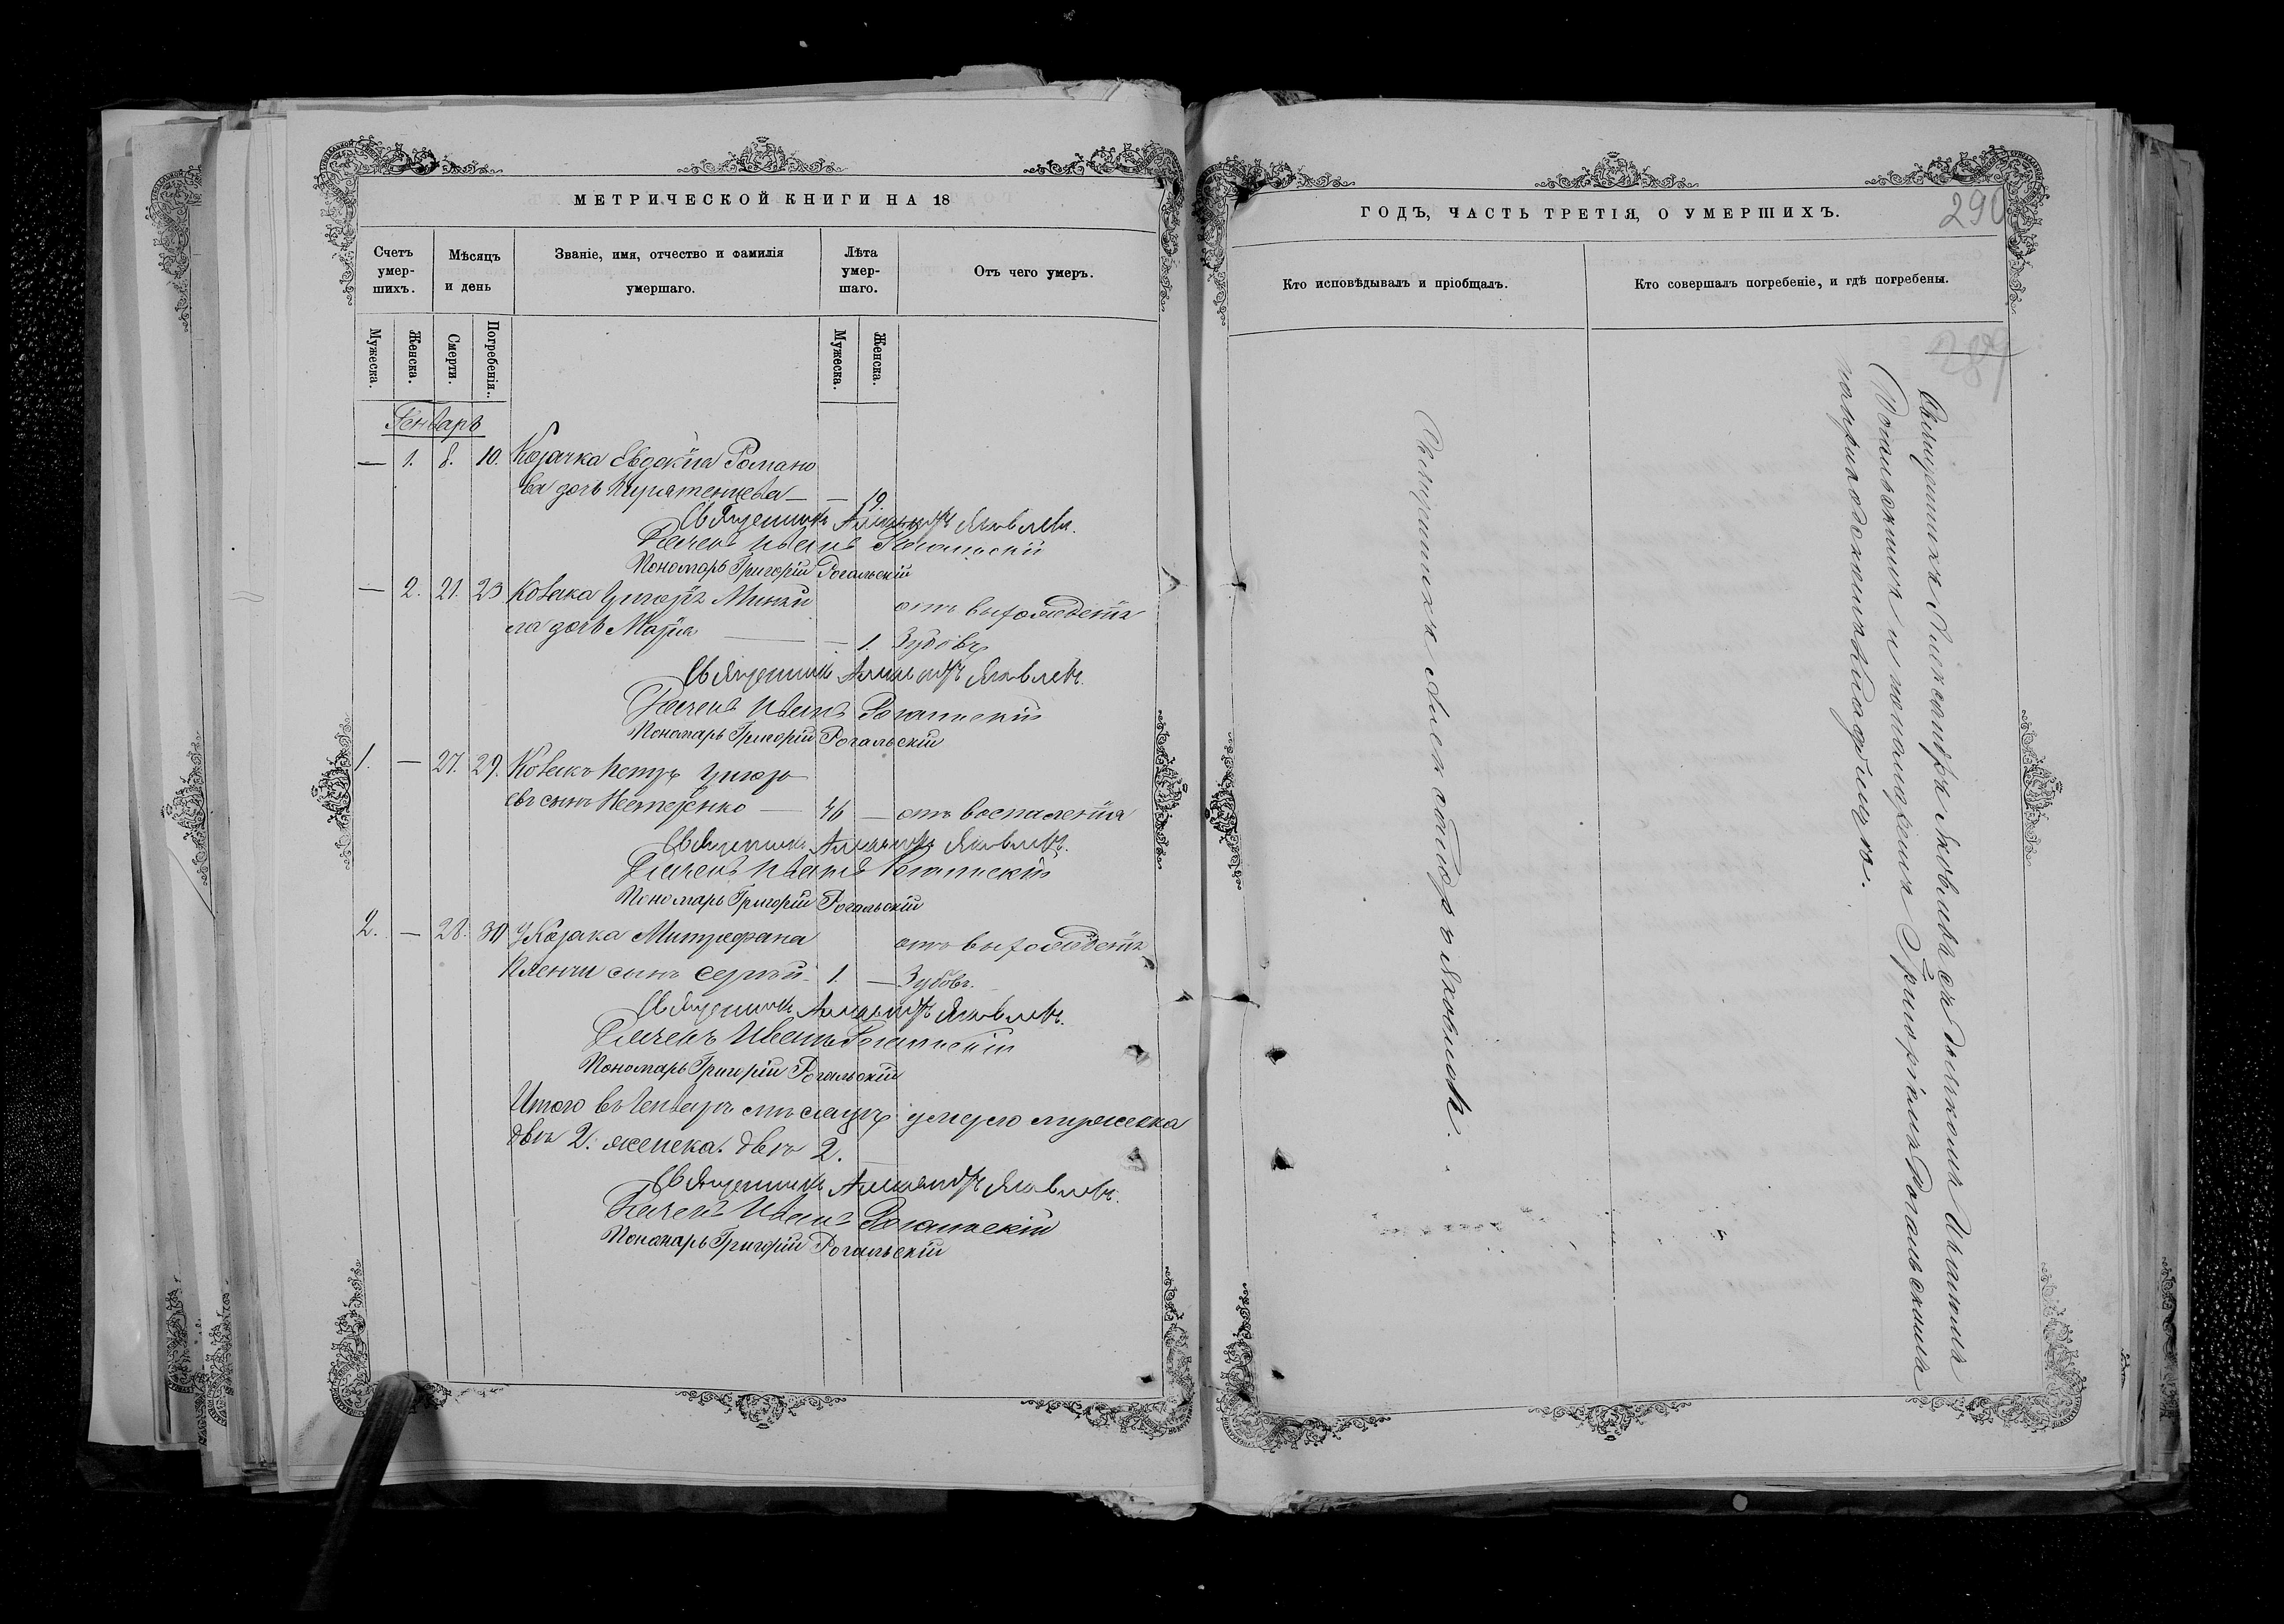 МЕТРИЧЕСКОЙ КНИГИ НА 18
Счетъ умер-шихъ.
Мѣсяцъ и день
Званіе, имя, отчество и фамилія умершаго.
Лѣта умер-шаго.
Отъ чего умеръ.
Мужеска.
Женска.
Смерти.
Погребенія.
Мужеска.
Женска.
Генваръ
— 1. 8. 10. Козачка Евдокія Романо
ва дочь — — 19
Священникъ Александръ Яковлевъ.
Дячекъ Иванъ Рогальскій
Пономарь Григорій Рогальскій
— 2. 21. 23 Козака Григорія
ла дочь Марія — — 1.
отъ
Зубовъ
Священникъ Александръ Яковлевъ.
Дячекъ Иванъ Рогальскій
Пономарь Григорій Рогальскій
1. — 27. 29. Козакъ Петръ Григорь
евъ сынъ Нестеренко — 46 — отъ воспаленія
Священникъ Александръ Яковлевъ.
Дячекъ Иванъ Рогальскій
Пономарь Григорій Рогальскій
2. — 28. 30 У Козака Митрофана
сынъ Сергѣй 1. —
отъ
Зубовъ.
Священникъ Александръ Яковлевъ.
Дячекъ Иванъ Рогальскій
Пономарь Григорій Рогальскій
Итого въ Генварѣ мѣсяцѣ умерло мужеска
два 2. женска. двѣ 2.
Священникъ Александръ Яковлевъ.
Дячекъ Иванъ Рогальскій
Пономарь Григорій Рогальскій
ГОДЪ, ЧАСТЬ ТРЕТІЯ, О УМЕРШИХЪ.
290
Кто исповѣдывалъ и пріобщалъ.
Кто совершалъ погребеніе, и гдѣ погребены.
289
Священникъ Александръ Яковлевъ.
Священникъ Александръ Яковлевъ съ дячкомъ Иваномъ
Рогальскимъ и пономаремъ Григоріемъ Рогальскимъ
на приходскомъ кладбищѣ.